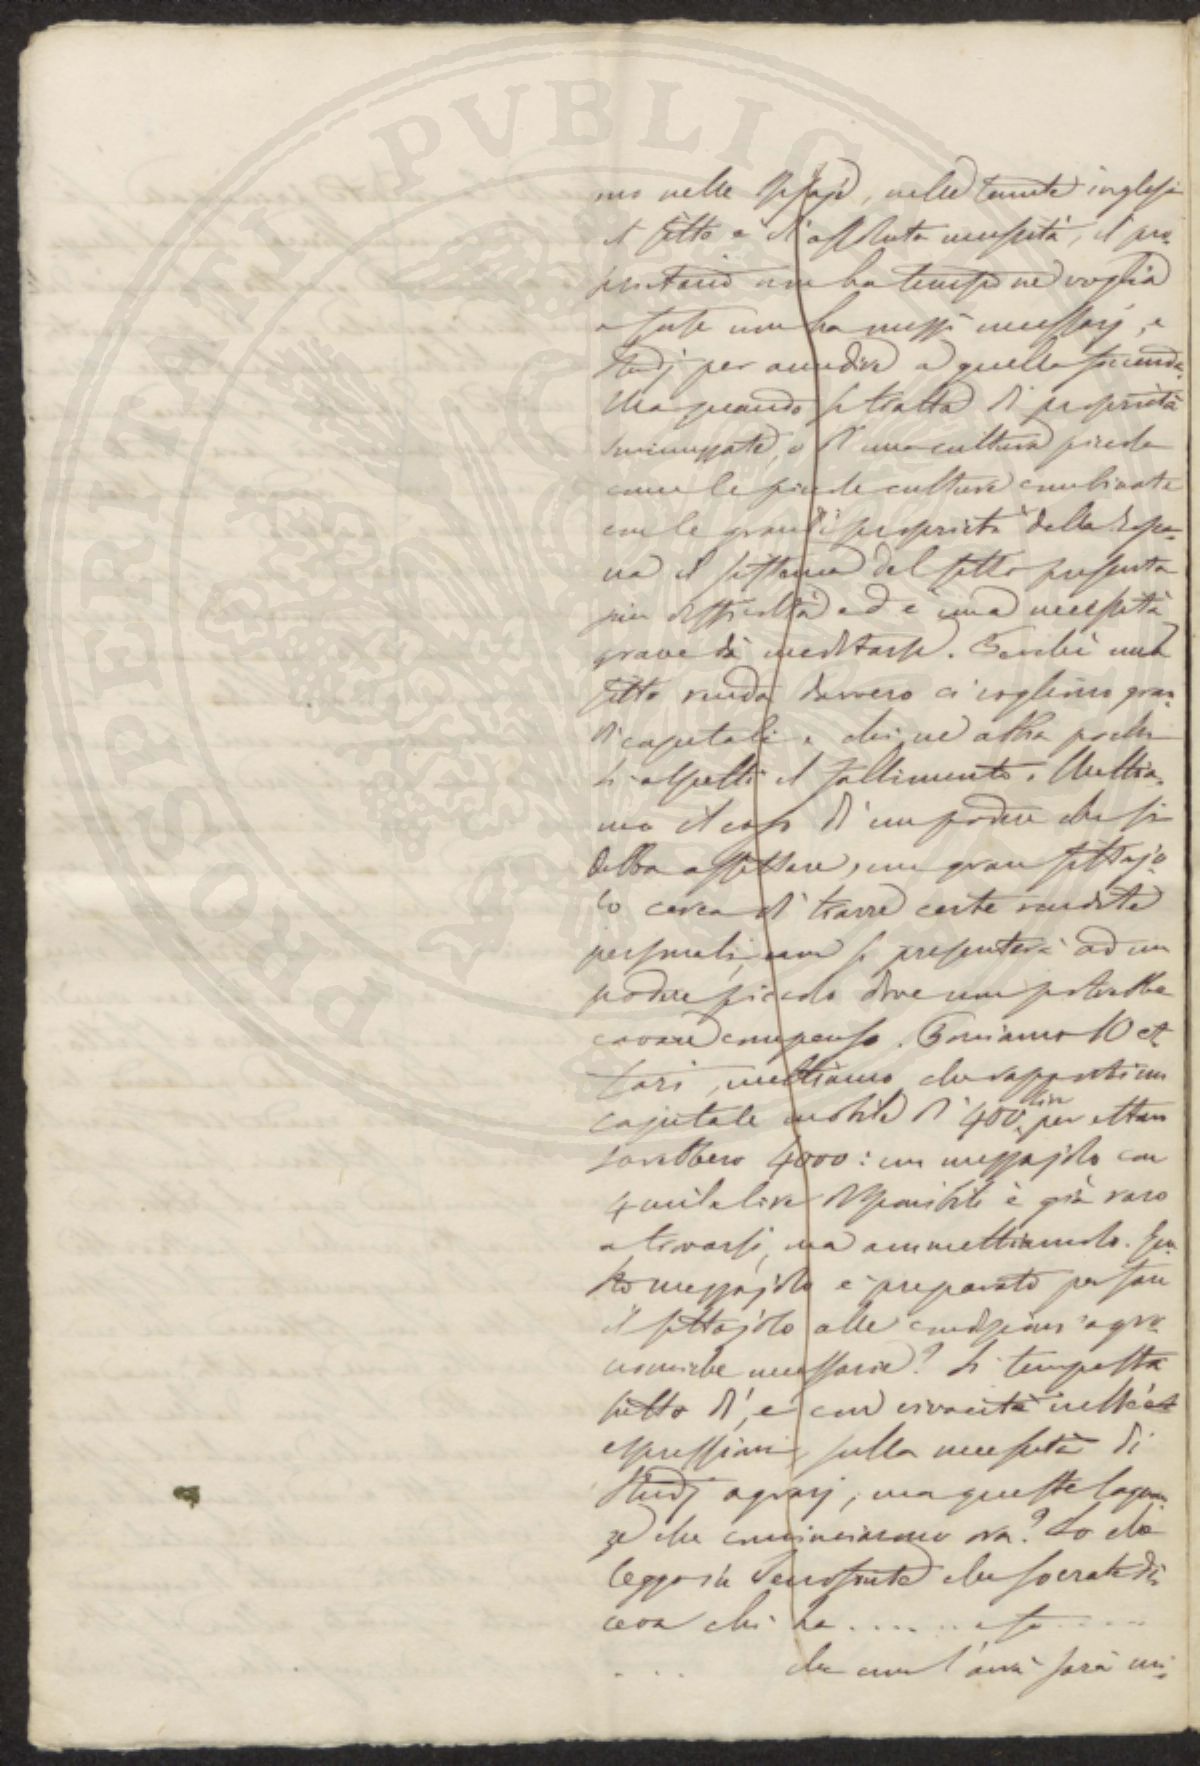 PROSPERITATI PVBLICAE
mo nelle , nelle tenute inglesi
il fitto è d'assoluta necessità, il pro-
prietario non ha tempo ne voglia
o forse non ha mezzi necessarj, e
studj per accudire a quella faccenda.
Ma quando si tratta di proprietà
sminuzzate, o d'una cultura piccola
come le piccole culture combinate
con le grandi proprietà della Tosca-
na il sistema del fitto presenta
più difficoltà ed è una necessità
grave da meditarsi. Perchè un
fitto renda davvero ci vogliono gran-
di capitali e chi ne abbia pochi
si aspetti il fallimento. Mettia-
mo il caso di un podere che si
debba affittare, un gran fittajo-
lo cerca di trarre certe rendite
personali, non si presenterà ad un
podere piccolo dove non potrebbe
cavare compenso. Poniamo 10 et-
tari, mettiamo che rapportino un
capitale mobile di 400 lire per ettaro
sarebbero 4000: un mezzajolo con
4 mila lire disponibili è già raro
a trovarsi, ma ammettiamolo. Que-
sto mezzajolo è preparato per fare
il fittajolo alle condizioni agro-
nomiche necessarie? Si tempesta
tutto dì, e con vivacità nelle
espressioni, sulla necessità di
studj agrarj, ma queste lagnan-
ze che cominciarono ora? Io che
leggo in Senofonte che Socrate di-
ceva chi ha ...... e fa ....
.... che come l'ava sarà mi-